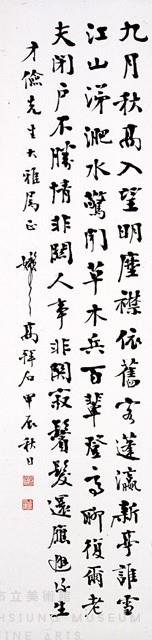 九月秋高入望明塵襟依舊客蓬瀛新亭誰雪
江山涕淝水驚聞草木兵百輩登高聊復爾老
夫閉戶不勝情非關人事非關寂鬢髮還應生
才儉先生大雅属正 高拜石甲辰秋日
市立美術館
HSIUNG MUSEUM
FINE ARTS